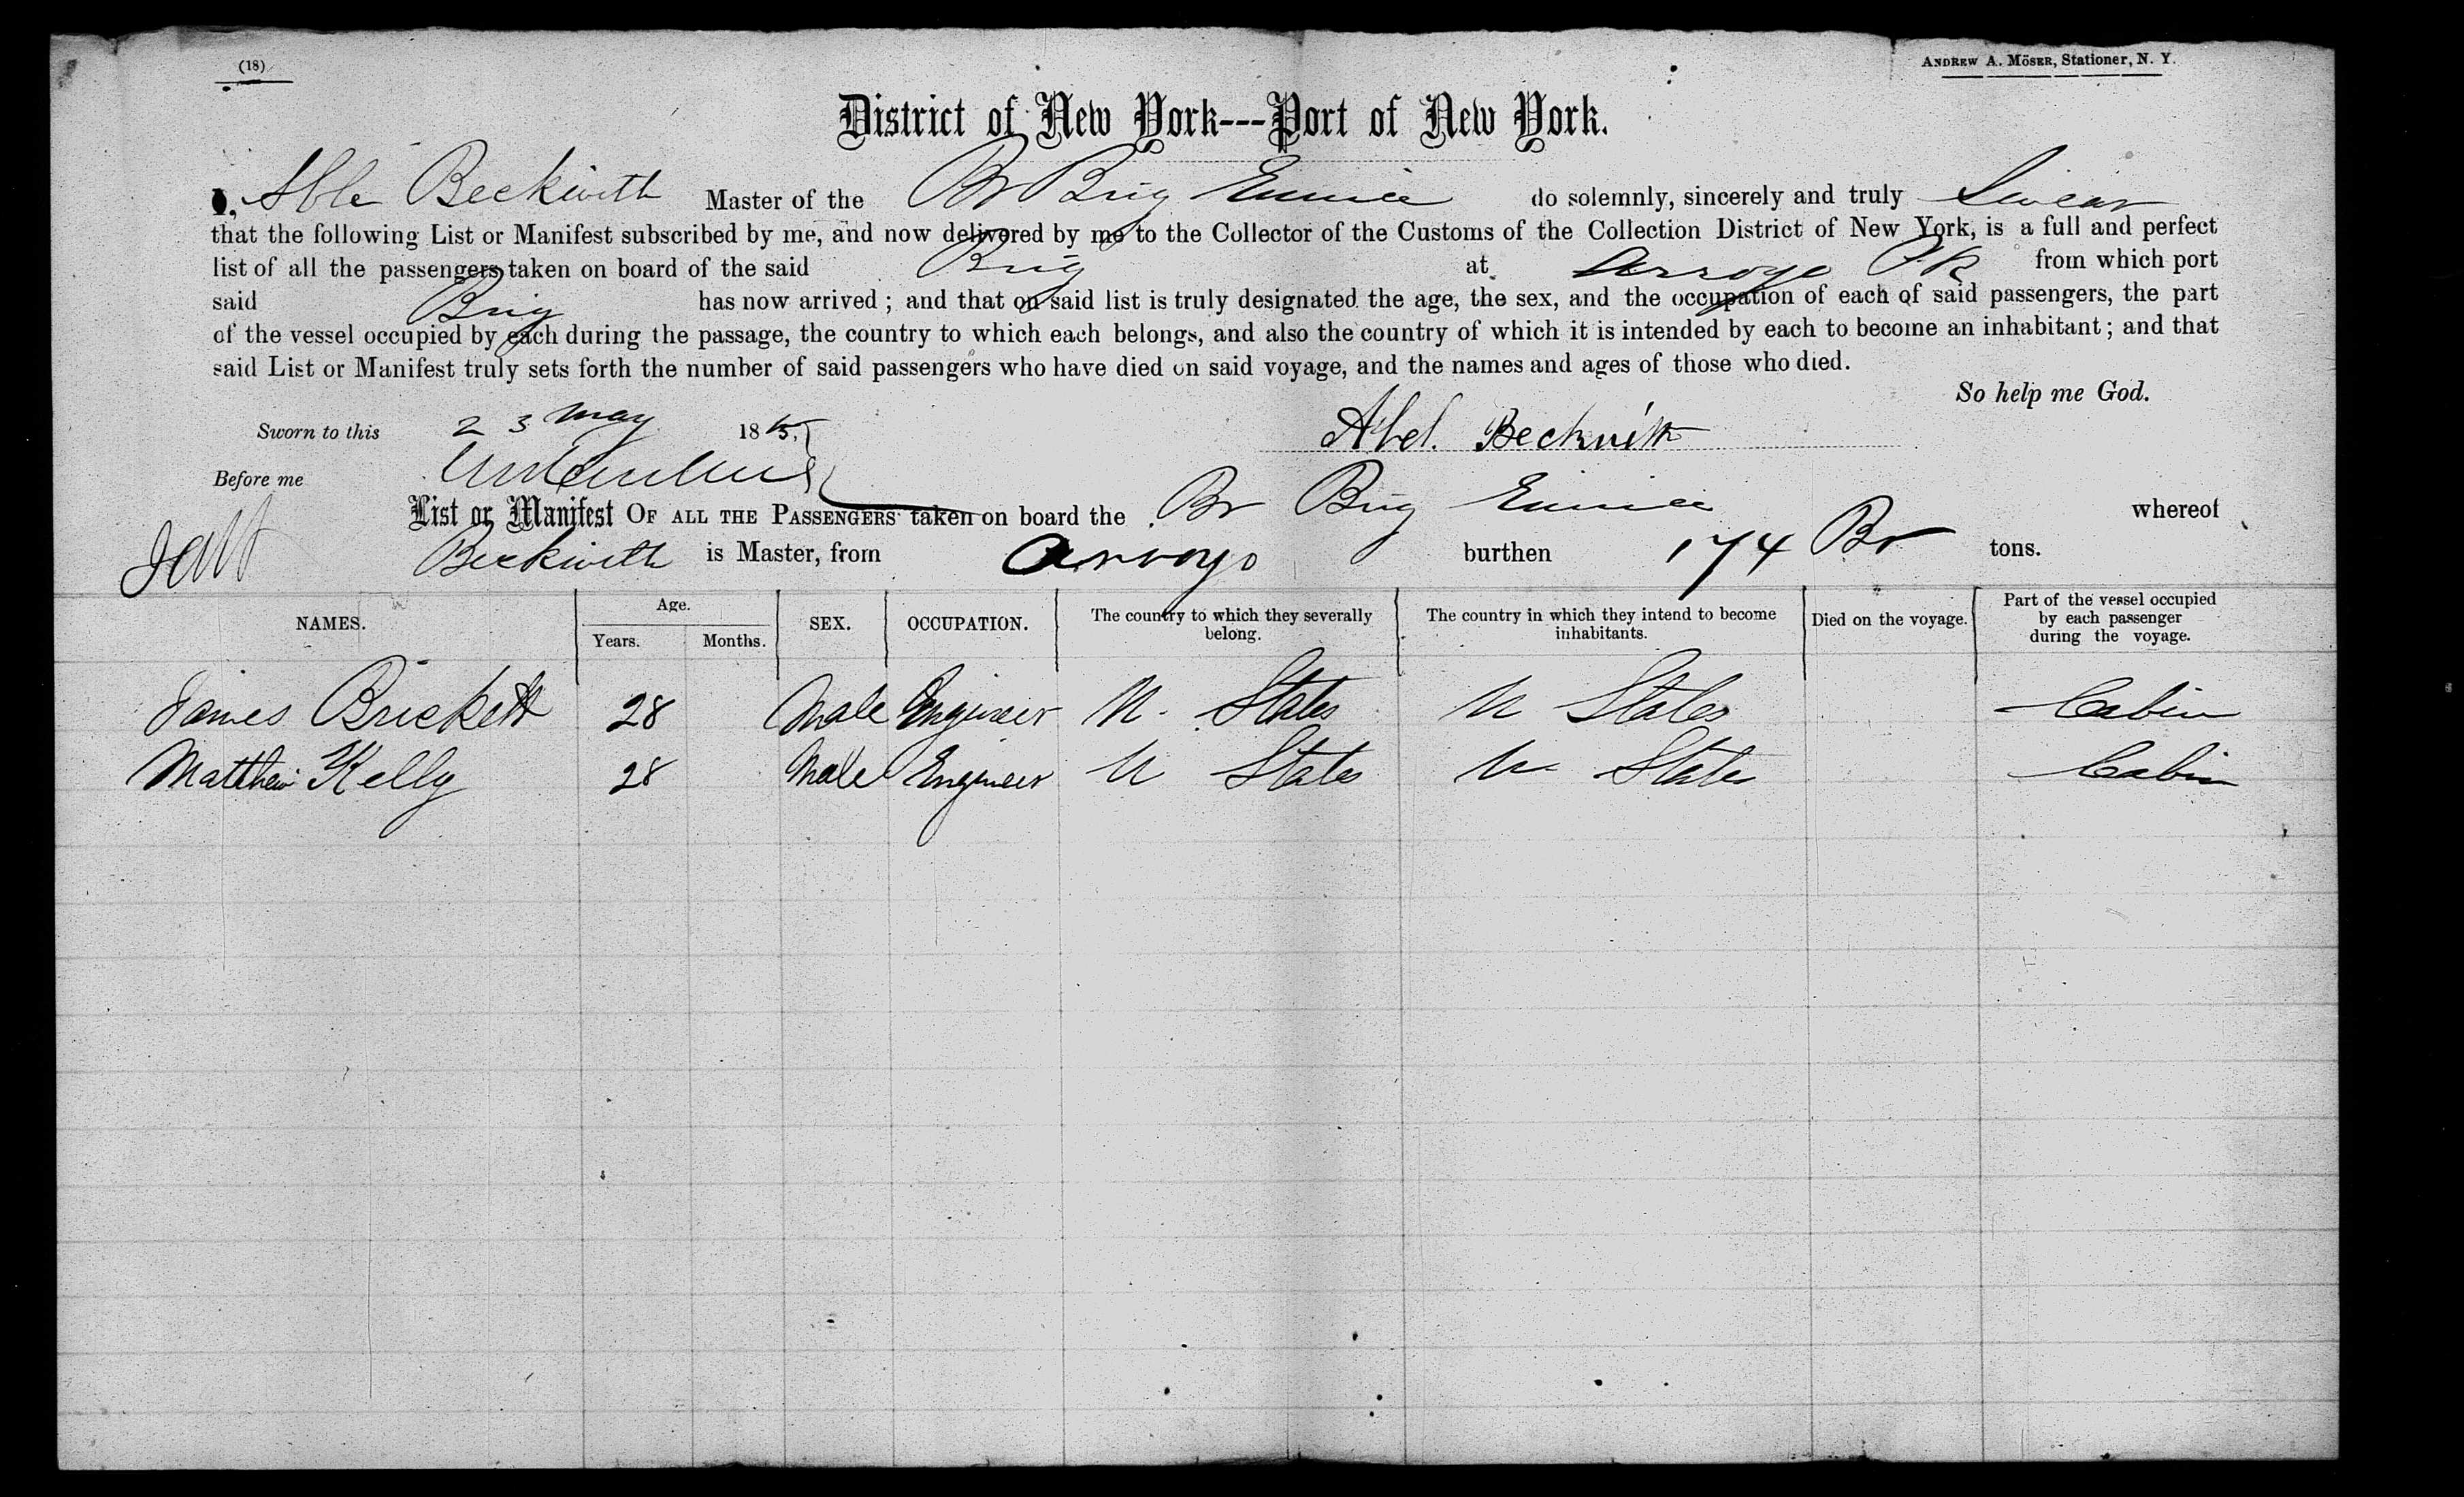 (18)
ANDREW A. MÖSER, Stationer, N. Y.
District of New York---Port of New York.
I, Able Beckwith Master of the Br Brig Eunice do solemnly, sincerely and truly Swear
that the following List or Manifest subscribed by me, and now delivered by me to the Collector of the Customs of the Collection District of New York, is a full and perfect
list of all the passengers taken on board of the said Brig at Arroyo P.R from which port
said Brig has now arrived; and that on said list is truly designated the age, the sex, and the occupation of each of said passengers, the part
of the vessel occupied by each during the passage, the country to which each belongs, and also the country of which it is intended by each to become an inhabitant; and that
said List or Manifest truly sets forth the number of said passengers who have died on said voyage, and the names and ages of those who died.
So help me God.
Sworn to this 23 May 18
Abel. Beckwith
Before me
List or Manifest OF ALL THE PASSENGERS taken on board the Br Brig Eunice whereof
Beckwith is Master, from Arroyo burthen 174 Br tons.
NAMES. Age. Years. Months. SEX. OCCUPATION. The country to which they severally belong. The country in which they intend to become inhabitants. Died on the voyage. Part of the vessel occupied by each passenger during the voyage.
James Brickett 28 Male Engineer U. States U States Cabin
Matthew Kelly 28 Male Engineer U States U States Cabin